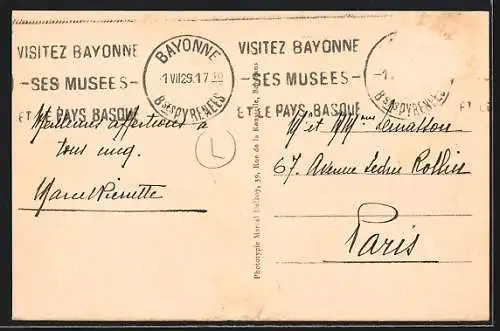 VISITEZ BAYONNE
-SES MUSEES-
ET LE PAYS BASQUE
BAYONNE
-1 VII 29. 17
Bses PYRENEES
VISITEZ BAYONNE
-SES MUSEES-
ET LE PAYS BASQUE
Bses PYRENEES
Meilleures affections à
tous
Marcel Pierrette
L
Phototypie Marcel Delboy, Bordeaux
M et Mme
67. Avenue Ledru Rollin
Paris